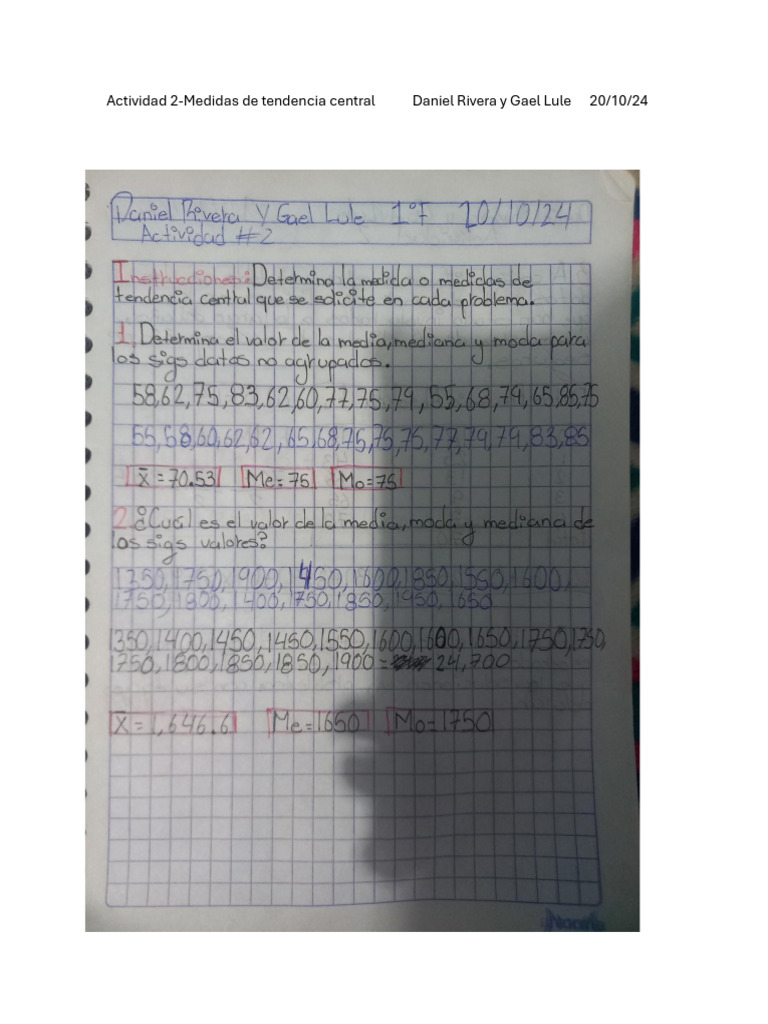 Actividad 2-Medidas de tendencia central Daniel Rivera y Gael Lule 20/10/24
Daniel Rivera Y Gael Lule 1°F 20/10/24
Actividad #2
Instrucciones: Determina la medida o medidas de
tendencia central que se solicite en cada problema.
1. Determina el valor de la media, mediana y moda para
los sigs datos no agrupados.
58,62,75,83,62,60,77,75,79,55,68,79,65,85,75
55,58,60,62,62,65,68,75,75,75,77,79,79,83,85
x̄=70.53 Me=75 Mo=75
2. ¿Cuál es el valor de la media, moda y mediana de
los sigs valores?
1350,1750,1900,1450,1600,1850,1550,1600,
1750,1800,1400,1750,1850,1450,1650
1350,1400,1450,1450,1550,1600,1600,1650,1750,1750,
1750,1800,1850,1850,1900= 24,700
x̄=1,646.6 Me=1650 Mo=1750